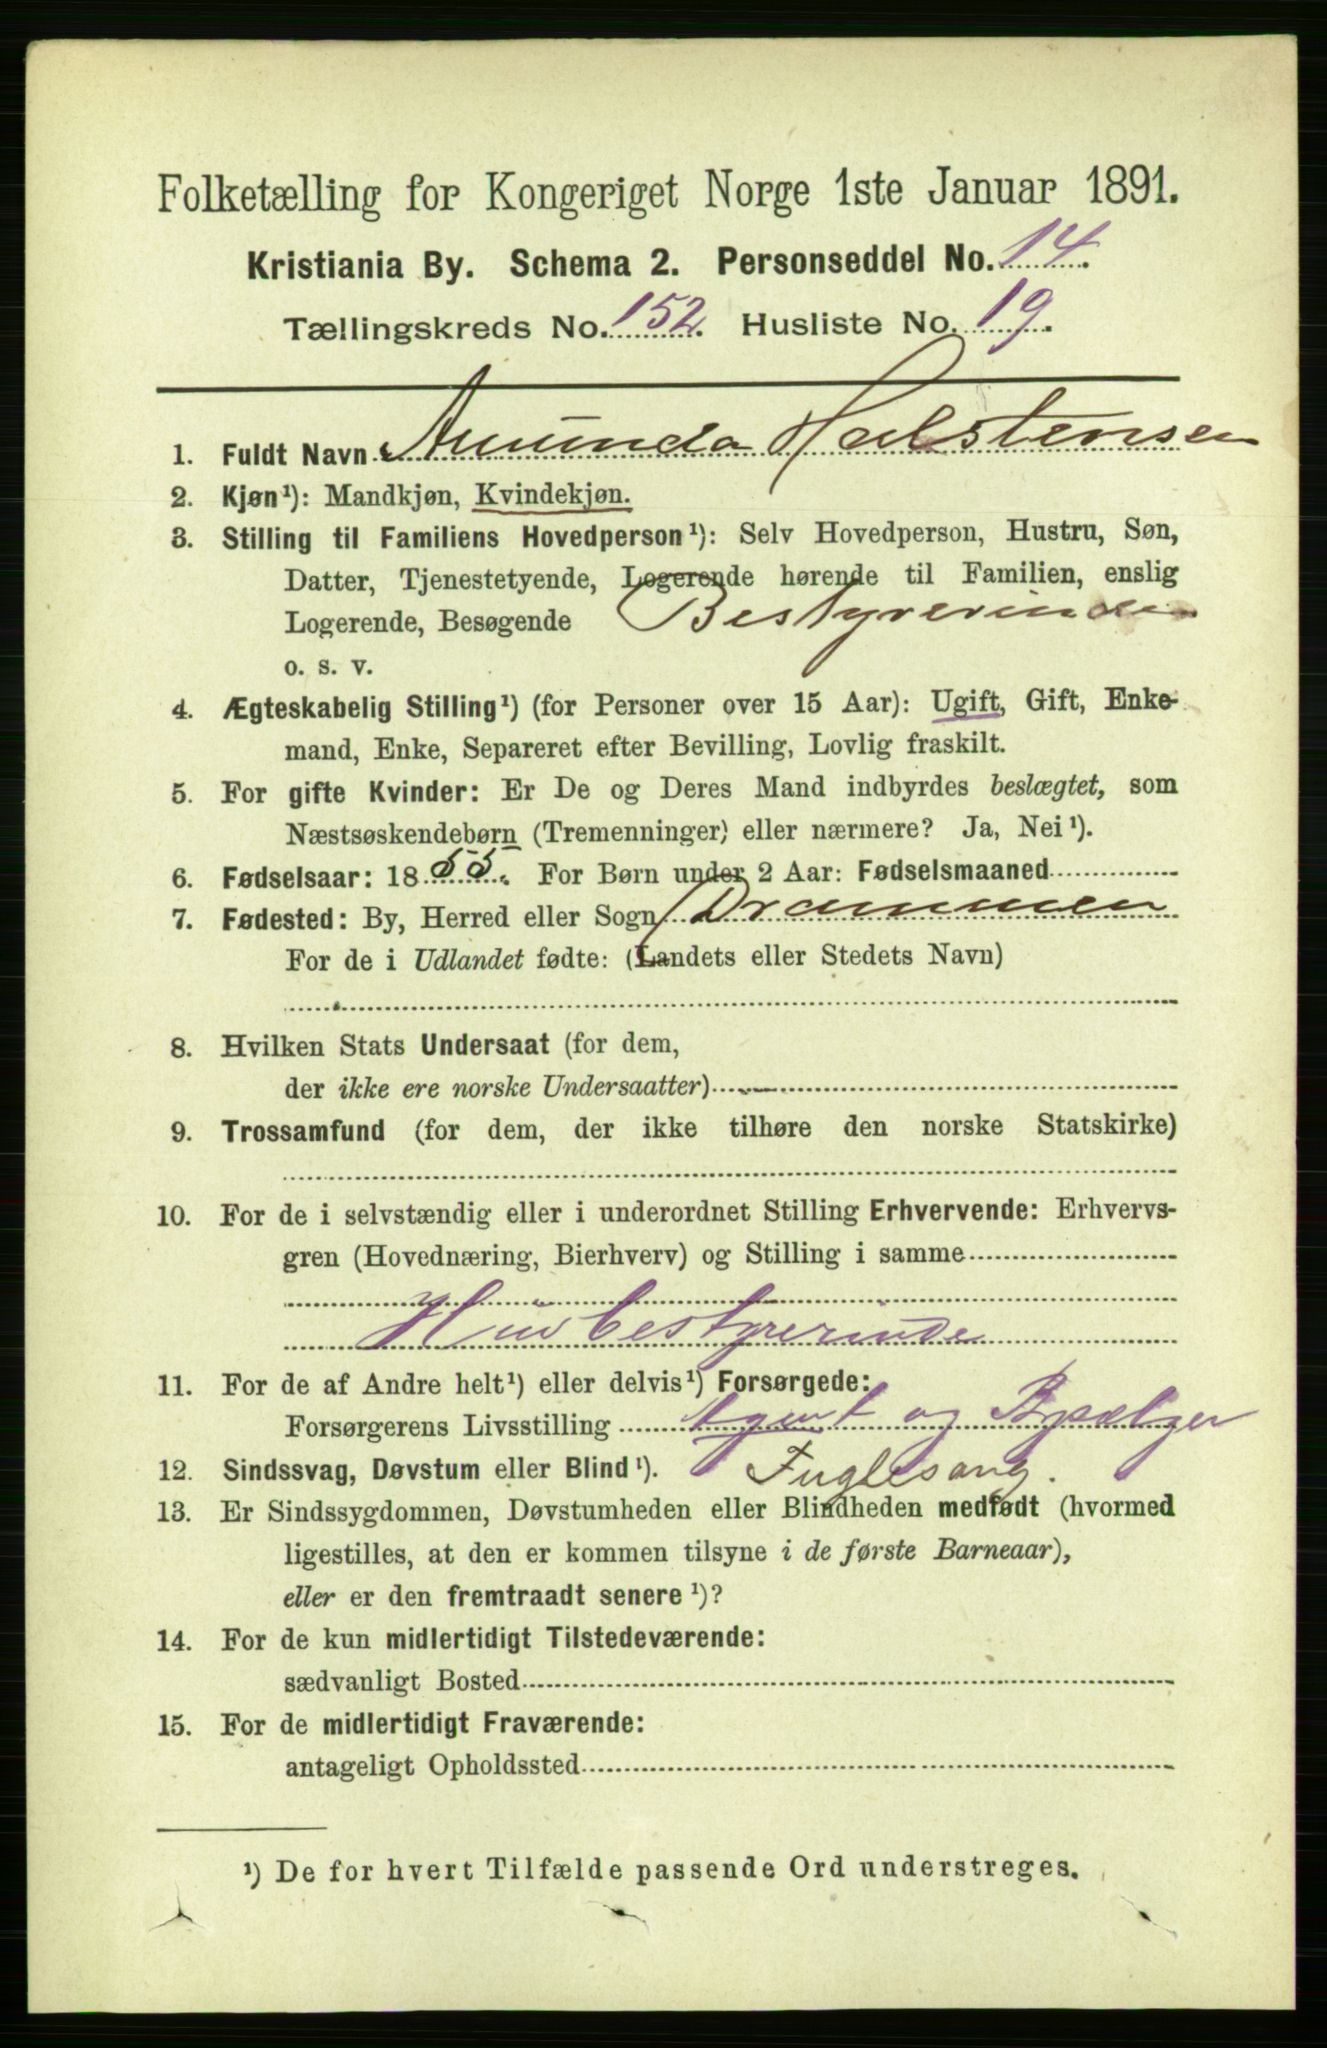 Folketælling for Kongeriget Norge 1ste Januar 1891.
Kristiania By. Schema 2. Personseddel No. 14.
Tællingskreds No. 152. Husliste No. 19.
1. Fuldt Navn Amunda Halstensen
2. Kjøn¹): Mandkjøn, Kvindekjøn.
3. Stilling til Familiens Hovedperson¹): Selv Hovedperson, Hustru, Søn,
Datter, Tjenestetyende, Logerende hørende til Familien, enslig
Logerende, Besøgende Bestyrerinde
o. s. v.
4. Ægteskabelig Stilling¹) (for Personer over 15 Aar): Ugift, Gift, Enke-
mand, Enke, Separeret efter Bevilling, Lovlig fraskilt.
5. For gifte Kvinder: Er De og Deres Mand indbyrdes beslægtet, som
Næstsøskendebørn (Tremenninger) eller nærmere? Ja, Nei¹).
6. Fødselsaar: 1855. For Børn under 2 Aar: Fødselsmaaned
7. Fødested: By, Herred eller Sogn Drammen
For de i Udlandet fødte: (Landets eller Stedets Navn)
8. Hvilken Stats Undersaat (for dem,
der ikke ere norske Undersaatter)
9. Trossamfund (for dem, der ikke tilhøre den norske Statskirke)
10. For de i selvstændig eller i underordnet Stilling Erhvervende: Erhvervs-
gren (Hovednæring, Bierhverv) og Stilling i samme
Husbestyrerinde
11. For de af Andre helt¹) eller delvis¹) Forsørgede:
Forsørgerens Livsstilling Agent og
12. Sindssvag, Døvstum eller Blind¹). Fuglesang.
13. Er Sindssygdommen, Døvstumheden eller Blindheden medfødt (hvormed
ligestilles, at den er kommen tilsyne i de første Barneaar),
eller er den fremtraadt senere¹)?
14. For de kun midlertidigt Tilstedeværende:
sædvanligt Bosted
15. For de midlertidigt Fraværende:
antageligt Opholdssted
¹) De for hvert Tilfælde passende Ord understreges.